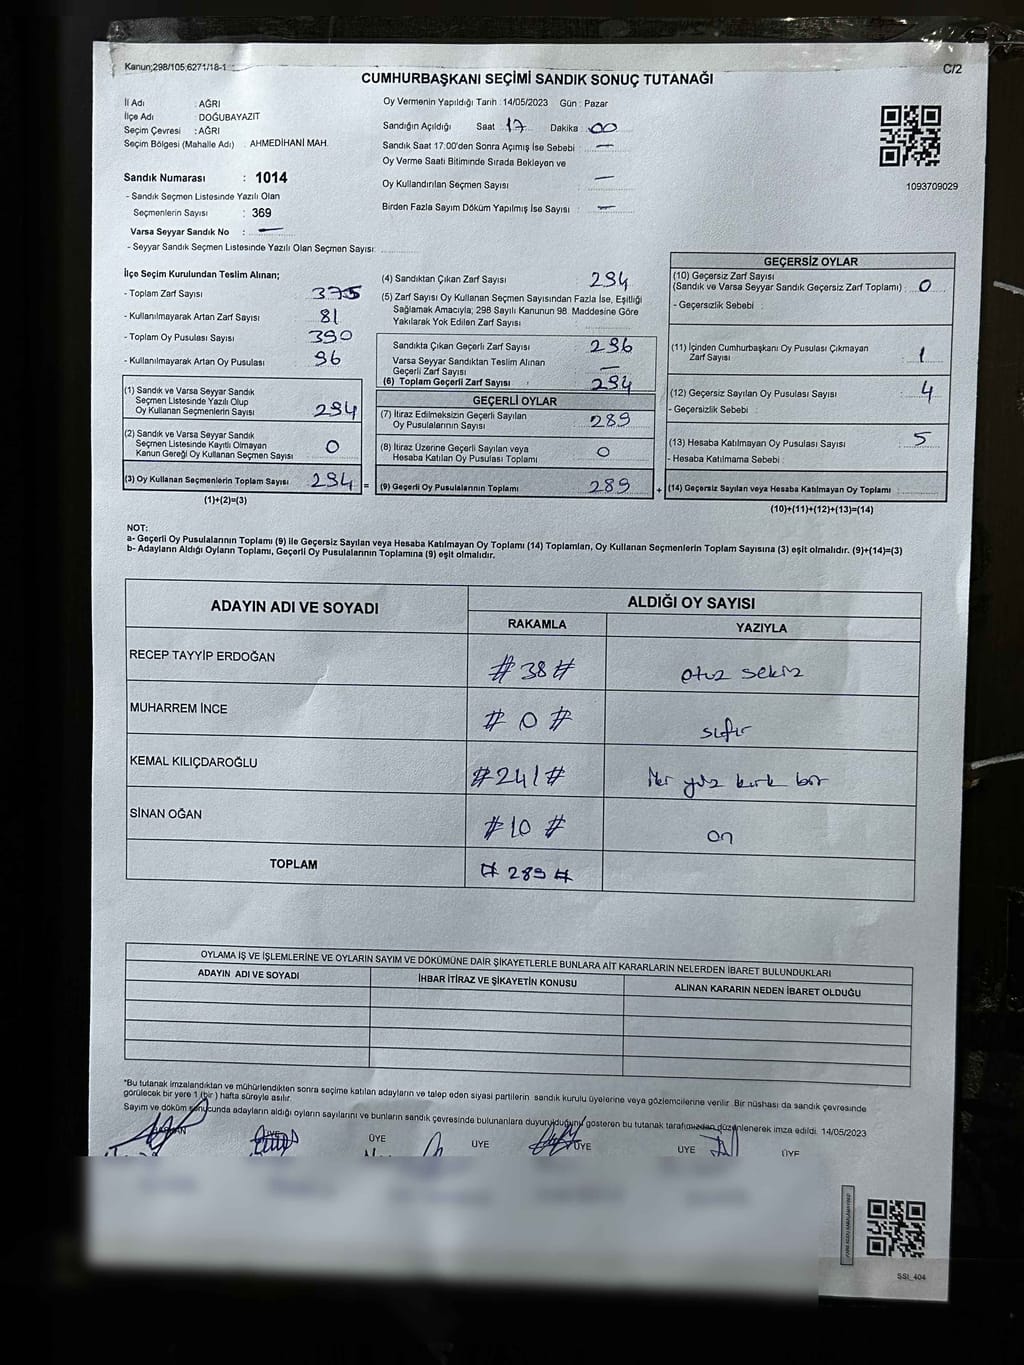 Kanun;298/105,6271/18-1
C/2
CUMHURBAŞKANI SEÇİMİ SANDIK SONUÇ TUTANAĞI
İl Adı : AĞRI
İlçe Adı : DOĞUBAYAZIT
Seçim Çevresi : AĞRI
Seçim Bölgesi (Mahalle Adı) : AHMEDİHANİ MAH.
Sandık Numarası : 1014
- Sandık Seçmen Listesinde Yazılı Olan
Seçmenlerin Sayısı : 369
Varsa Seyyar Sandık No : —
- Seyyar Sandık Seçmen Listesinde Yazılı Olan Seçmen Sayısı:
Oy Vermenin Yapıldığı Tarih : 14/05/2023 Gün : Pazar
Sandığın Açıldığı Saat 17 Dakika 00
Sandık Saat 17:00'den Sonra Açımış İse Sebebi : —
Oy Verme Saati Bitiminde Sırada Bekleyen ve
Oy Kullandırılan Seçmen Sayısı —
Birden Fazla Sayım Döküm Yapılmış İse Sayısı : —
1093709029
İlçe Seçim Kurulundan Teslim Alınan;
- Toplam Zarf Sayısı : 375
- Kullanılmayarak Artan Zarf Sayısı : 81
- Toplam Oy Pusulası Sayısı : 390
- Kullanılmayarak Artan Oy Pusulası : 96
(1) Sandık ve Varsa Seyyar Sandık
Seçmen Listesinde Yazılı Olup
Oy Kullanan Seçmenlerin Sayısı : 294
(2) Sandık ve Varsa Seyyar Sandık
Seçmen Listesinde Kayıtlı Olmayan
Kanun Gereği Oy Kullanan Seçmen Sayısı : 0
(3) Oy Kullanan Seçmenlerin Toplam Sayısı : 294 =
(1)+(2)=(3)
(4) Sandıktan Çıkan Zarf Sayısı : 294
(5) Zarf Sayısı Oy Kullanan Seçmen Sayısından Fazla İse, Eşitliği
Sağlamak Amacıyla; 298 Sayılı Kanunun 98. Maddesine Göre
Yakılarak Yok Edilen Zarf Sayısı :
Sandıkta Çıkan Geçerli Zarf Sayısı : 296
Varsa Seyyar Sandıktan Teslim Alınan
Geçerli Zarf Sayısı : —
(6) Toplam Geçerli Zarf Sayısı : 294
GEÇERLİ OYLAR
(7) İtiraz Edilmeksizin Geçerli Sayılan
Oy Pusulalarının Sayısı : 289
(8) İtiraz Üzerine Geçerli Sayılan veya
Hesaba Katılan Oy Pusulası Toplamı : 0
(9) Geçerli Oy Pusulalarının Toplamı : 289 +
GEÇERSİZ OYLAR
(10) Geçersiz Zarf Sayısı
(Sandık ve Varsa Seyyar Sandık Geçersiz Zarf Toplamı) : 0
- Geçersizlik Sebebi :
(11) İçinden Cumhurbaşkanı Oy Pusulası Çıkmayan
Zarf Sayısı : 1
(12) Geçersiz Sayılan Oy Pusulası Sayısı : 4
- Geçersizlik Sebebi :
(13) Hesaba Katılmayan Oy Pusulası Sayısı : 5
- Hesaba Katılmama Sebebi :
(14) Geçersiz Sayılan veya Hesaba Katılmayan Oy Toplamı :
(10)+(11)+(12)+(13)=(14)
NOT:
a- Geçerli Oy Pusulalarının Toplamı (9) ile Geçersiz Sayılan veya Hesaba Katılmayan Oy Toplamı (14) Toplamları, Oy Kullanan Seçmenlerin Toplam Sayısına (3) eşit olmalıdır. (9)+(14)=(3)
b- Adayların Aldığı Oyların Toplamı, Geçerli Oy Pusulalarının Toplamına (9) eşit olmalıdır.
ADAYIN ADI VE SOYADI
ALDIĞI OY SAYISI
RAKAMLA YAZIYLA
RECEP TAYYİP ERDOĞAN # 38 # otuz sekiz
MUHARREM İNCE # 0 # sıfır
KEMAL KILIÇDAROĞLU # 241 # iki yüz kırk bir
SİNAN OĞAN # 10 # on
TOPLAM # 289 #
OYLAMA İŞ VE İŞLEMLERİNE VE OYLARIN SAYIM VE DÖKÜMÜNE DAİR ŞİKAYETLERLE BUNLARA AİT KARARLARIN NELERDEN İBARET BULUNDUKLARI
ADAYIN ADI VE SOYADI İHBAR İTİRAZ VE ŞİKAYETİN KONUSU ALINAN KARARIN NEDEN İBARET OLDUĞU
*Bu tutanak imzalandıktan ve mühürlendikten sonra seçime katılan adayların ve talep eden siyasi partilerin sandık kurulu üyelerine veya gözlemcilerine verilir. Bir nüshası da sandık çevresinde
görülecek bir yere 1 (bir) hafta süreyle asılır.
Sayım ve döküm sonucunda adayların aldığı oyların sayılarını ve bunların sandık çevresinde bulunanlara duyurulduğunu gösteren bu tutanak tarafımızdan düzenlenerek imza edildi. 14/05/2023
BAŞKAN ÜYE ÜYE ÜYE ÜYE ÜYE ÜYE
SSI_404